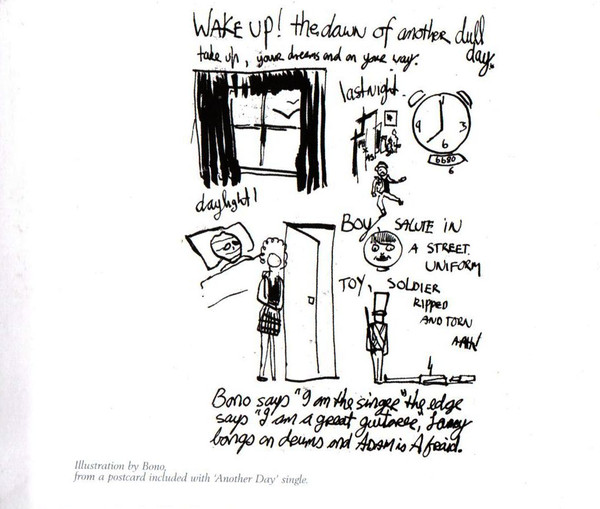 WAKE UP! the dawn of another dull day.
take up, your dreams and on your way.
last night.
9 3
6
6680
6
daylight!
BOY, SALUTE IN
A STREET.
UNIFORM
TOY, SOLDIER
RIPPED
AND TORN
AAH!
Bono says "I am the singer" the edge
says "I am a great guitaree", Larry
bangs on drums and ADAM is Afraid.
Illustration by Bono,
from a postcard included with 'Another Day' single.